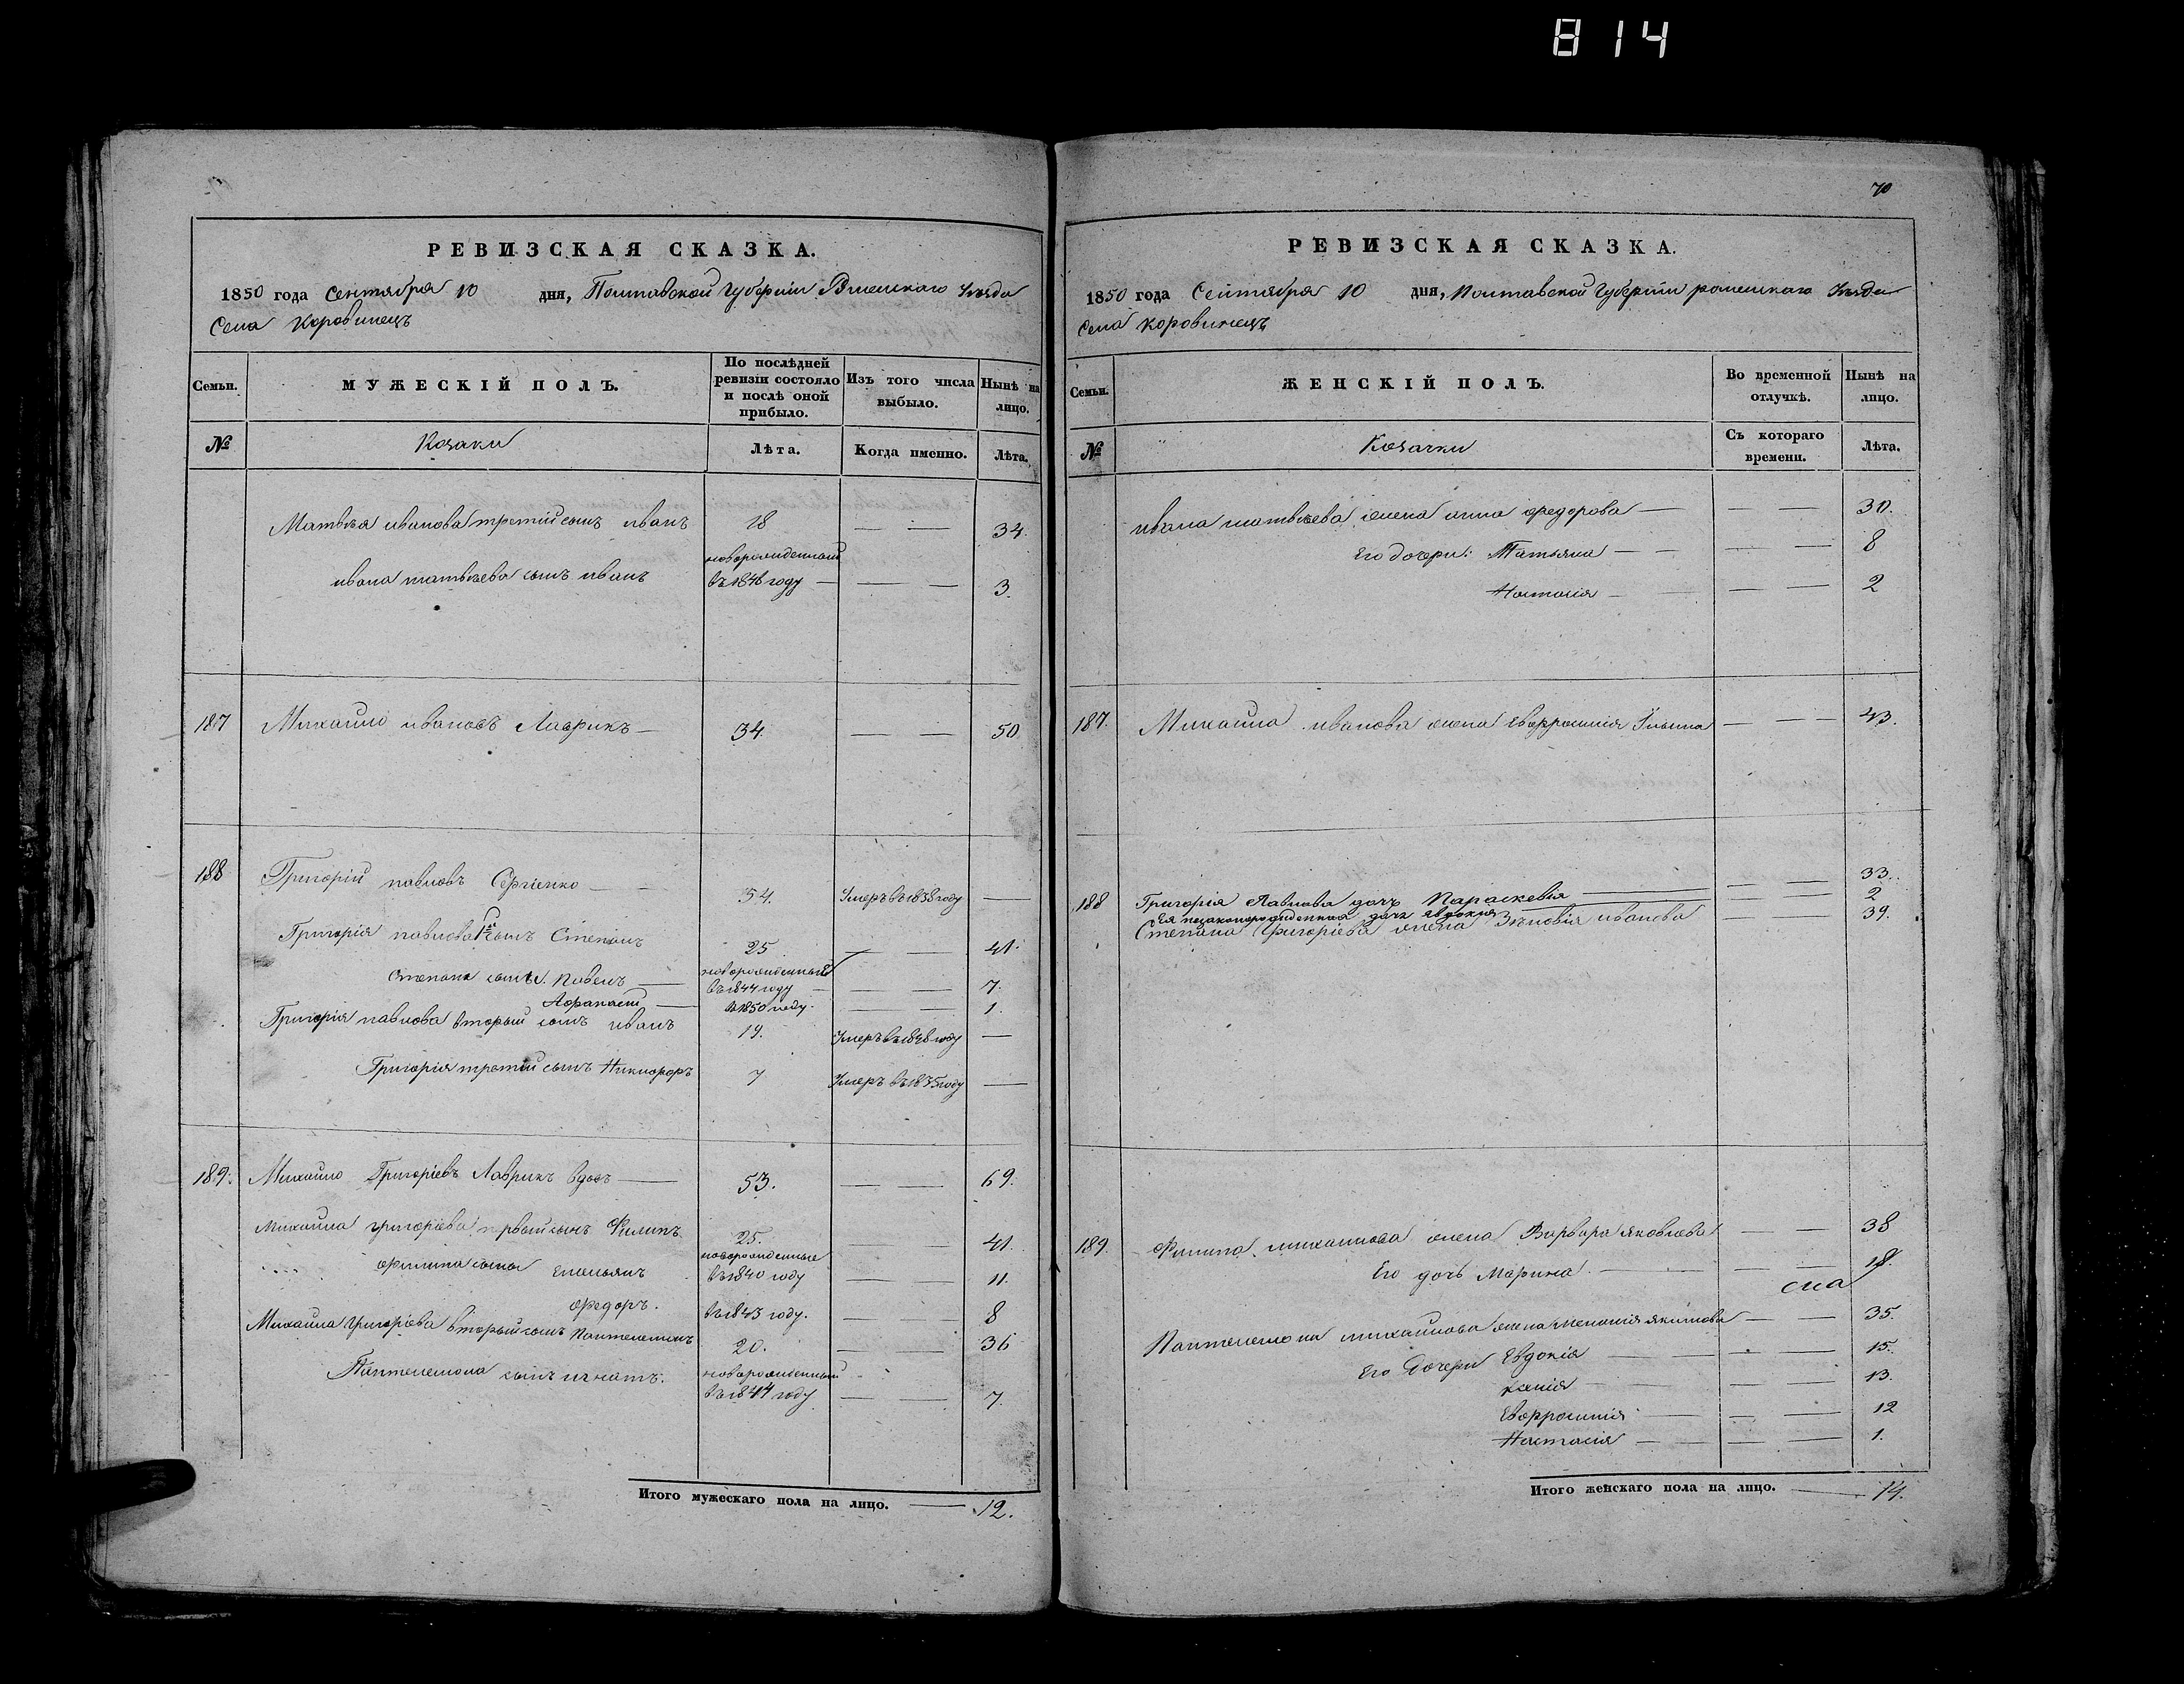 814
РЕВИЗСКАЯ СКАЗКА.
1850 года Сентября 10 дня, Полтавской Губерніи Уѣзда
Села Коровинецъ
Семьи.
МУЖЕСКІЙ ПОЛЪ.
По послѣдней ревизіи состояло и послѣ оной прибыло.
Изъ того числа выбыло.
Нынѣ на лицо.
№
Козаки
Лѣта.
Когда именно.
Лѣта.
Матвѣя иванова третій сынъ иванъ 18 — — 34.
ивана матвѣева сынъ иванъ новорожденный въ 1848 году — — — 3.
187 Михайло ивановъ Лаврикъ — 34. — — 50
188 Григорій павловъ Сергіенко — — 54. Умеръ въ 1838 году —
Григорія павлова 1й сынъ Степанъ 25 — — 41.
Степана сыны. Павелъ — новорожденные въ 1844 году — — — 7.
Афанасій — въ 1850 году. — — 1.
Григорія павлова вторый сынъ иванъ 19. Умеръ въ 1848 году —
Григорія третій сынъ Никифоръ 7 Умеръ въ 1835 году —
189. Михайло Григоріевъ Лаврикъ вдовъ — 53. — — 69.
Михайла григоріева первый сынъ Филипъ 25. — 41.
филипа сыны Емельянъ новорожденные въ 1840 году — — 11.
Федоръ. въ 1843 году. — — 8
Михайла Григоріева вторый сынъ Пантелемонъ 20. — 36
Пантелемона сынъ игнатъ. новорожденный въ 1844 году — — 7.
Итого мужескаго пола на лицо. — 12.
70
РЕВИЗСКАЯ СКАЗКА.
1850 года Сентября 10 дня, Полтавской Губерніи роменскаго Уѣзда
Села Коровинецъ
Семьи.
ЖЕНСКІЙ ПОЛЪ.
Во временной отлучкѣ.
Нынѣ на лицо.
№
Козачки
Съ котораго времени.
Лѣта.
ивана матвѣева жена анна федорова — — — 30.
Его дочери: Татьяна — — — — 8
Настасія — — — 2
187. Михайла иванова жена Евфросинія Ильина — — — 43.
188 Григорія Павлова дочь Параскевія — — — 33.
Ея незаконорожденная дочь явдокия — 2
Степана Григоріева жена Зѣновія иванова — — 39.
189. Филипа михайлова жена Варвара яковлева — — 38
Его дочь Марина. — — — 18.
Пантелемона михайлова жена якимова — — 35.
Его Дочери Евдокія — — — 15.
— — — 13.
Евфросинія — — — 12
Настасія — — — — 1.
Итого женскаго пола на лицо. — 14.